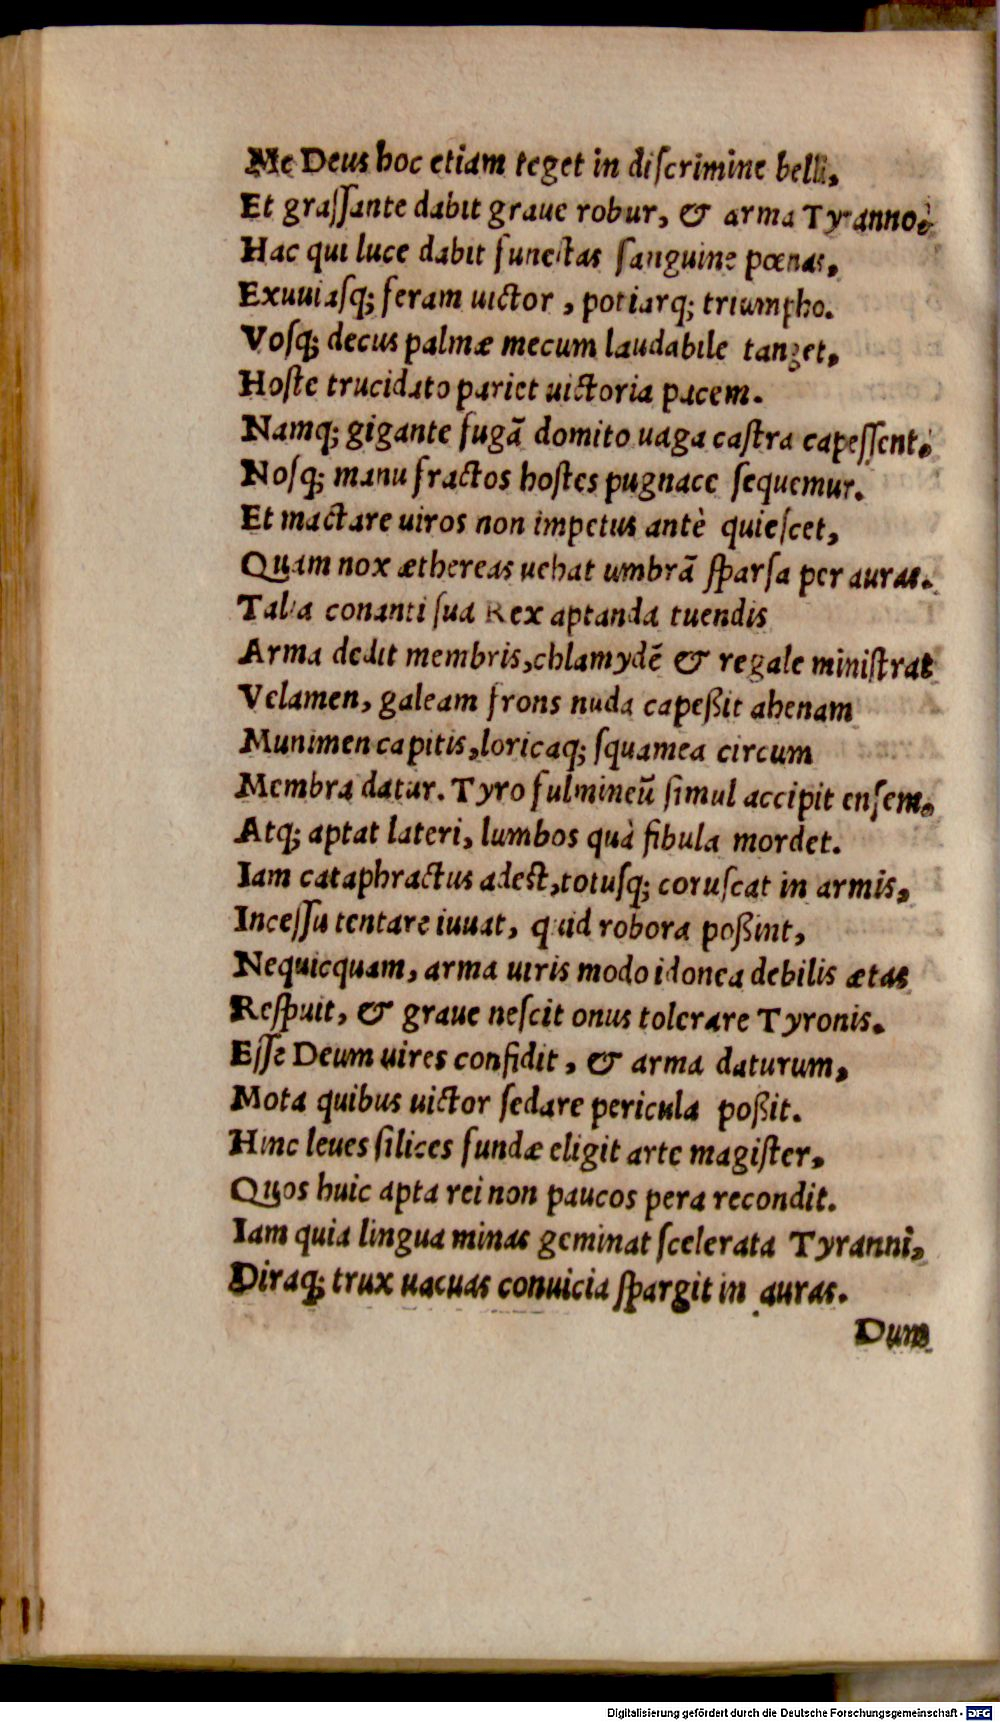 Me Deus hoc etiam teget in diſcrimine belli,
Et graſſante dabit graue robur, & arma Tyranno,
Hac qui luce dabit funeſtas ſanguine pœnas,
Exuuiasq; feram uictor, potiarq; triumpho.
Voſq; decus palmæ mecum laudabile tanget,
Hoſte trucidato pariet uictoria pacem.
Namq; gigante fugā domito uaga caſtra capeſſent,
Noſq; manu fractos hoſtes pugnace ſequemur.
Et mactare uiros non impetus antè quieſcet,
Quam nox æthereas uehat umbrā ſparſa per auras.
Talia conanti ſua Rex aptanda tuendis
Arma dedit membris, chlamydē & regale miniſtrat
Velamen, galeam frons nuda capeßit ahenam
Munimen capitis, loricaq; ſquamea circum
Membra datur. Tyro fulmineū ſimul accipit enſem,
Atq; aptat lateri, lumbos quà fibula mordet.
Iam cataphractus adeſt, totuſq; coruſcat in armis,
Inceſſu tentare iuuat, quid robora poßint,
Nequicquam, arma uiris modo idonea debilis ætas
Reſpuit, & graue neſcit onus tolerare Tyronis.
Eſſe Deum uires confidit, & arma daturum,
Mota quibus uictor ſedare pericula poßit.
Hinc leues ſilices fundæ eligit arte magiſter,
Quos huic apta rei non paucos pera recondit.
Iam quia lingua minas geminat ſcelerata Tyranni,
Diraq; trux uacuas conuicia ſpargit in auras.
Dum
Digitalisierung gefördert durch die Deutsche Forschungsgemeinschaft - DFG